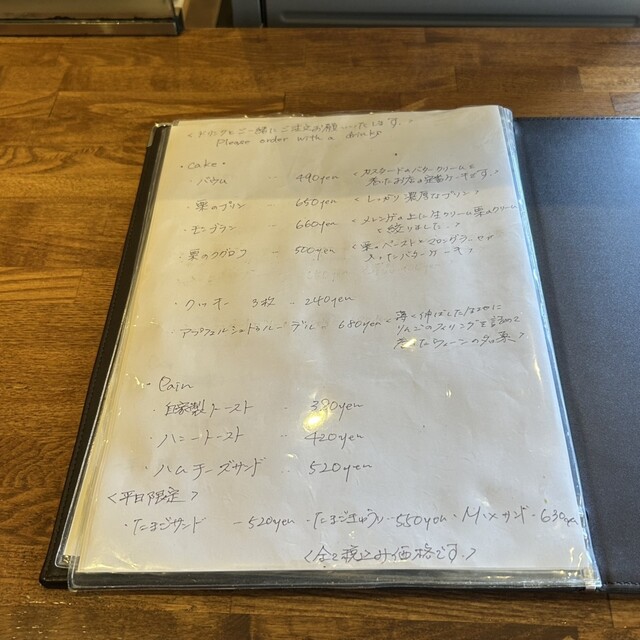 <ドリンクとご一緒にご注文お願いいたします。>
Please order with a drinks
・Cake・
・バウム ‥ 490yen <カスタードのバタークリームを
巻いたお店の定番ケーキです。>
・栗のプリン ‥ 650yen <しっかり濃厚なプリン>
・モンブラン ‥ 660yen <メレンゲの上に生クリーム栗のクリーム
を絞りました。>
・栗のクグロフ ‥ 500yen <栗ペーストとマロングラッセが
入ったバターケーキ>
・クッキー 3枚 ‥ 240yen
・アプフェルシュトゥルーデル ‥ 680yen <薄く伸ばした生地に
りんごのフィリングを詰めて
巻いたウィーンのお菓子>
・Pain
・自家製トースト ‥ 380yen
・ハニートースト ‥ 420yen
・ハムチーズサンド ‥ 520yen
<平日限定>
・たまごサンド ー520yen ・たまごきゅうり‥550yen ・Mixサンド・630yen
<全て税込み価格です。>